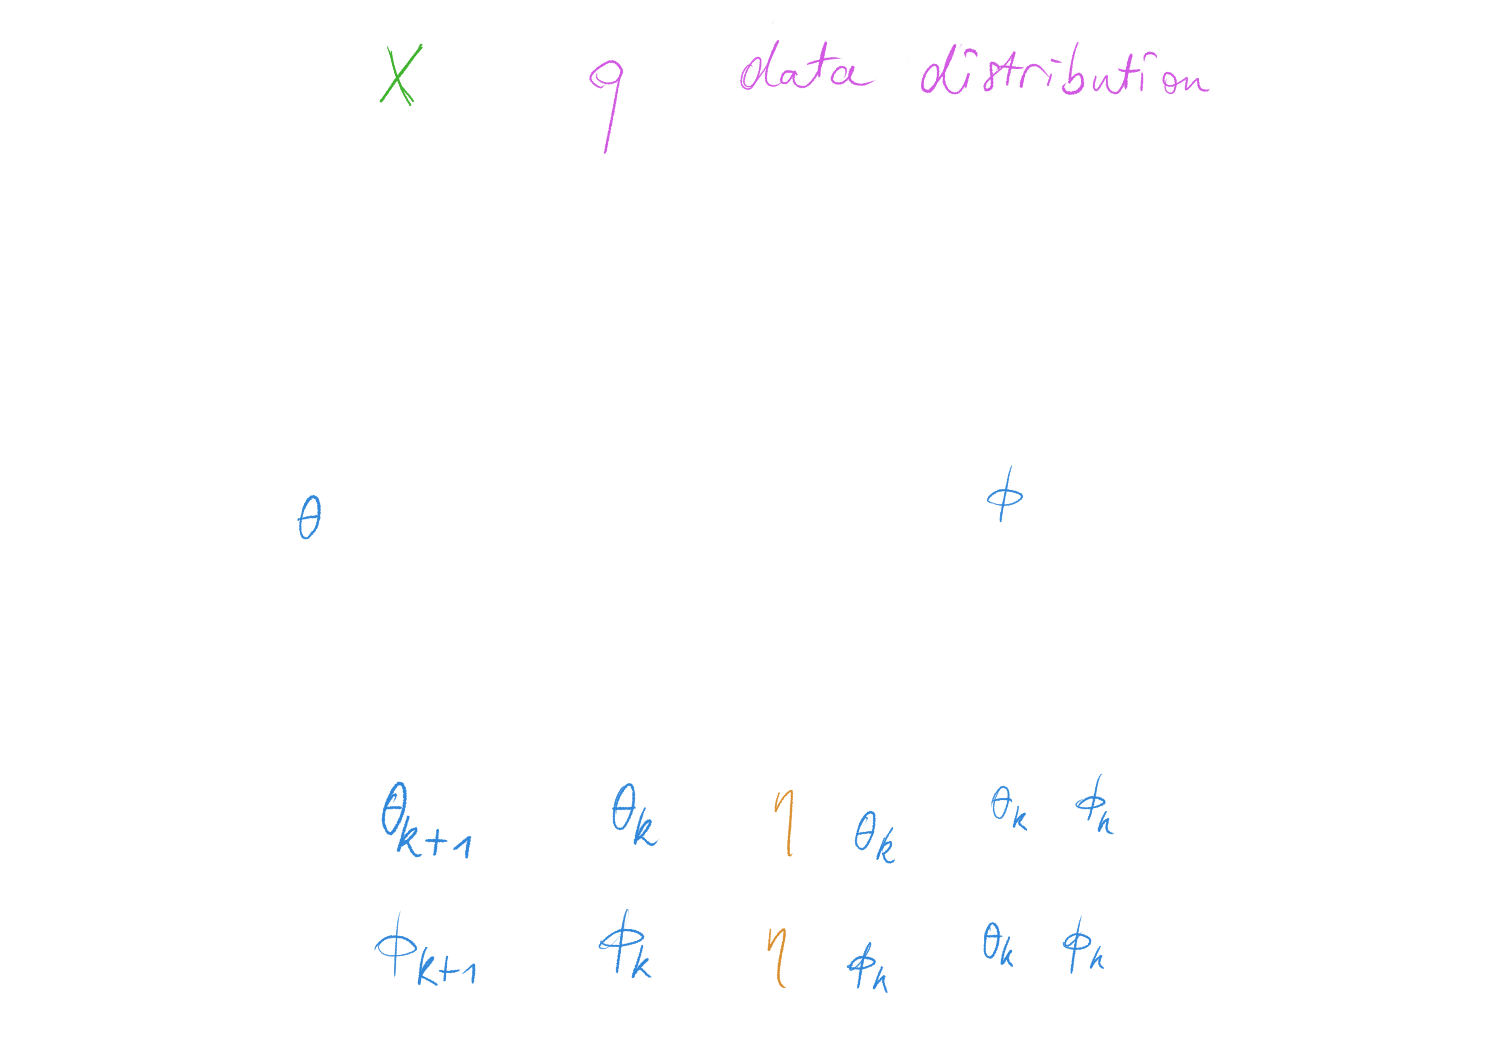 X q data distribution
θ ϕ
θ_{k+1} θ_k η θ_k θ_k ϕ_k
ϕ_{k+1} ϕ_k η ϕ_k θ_k ϕ_k